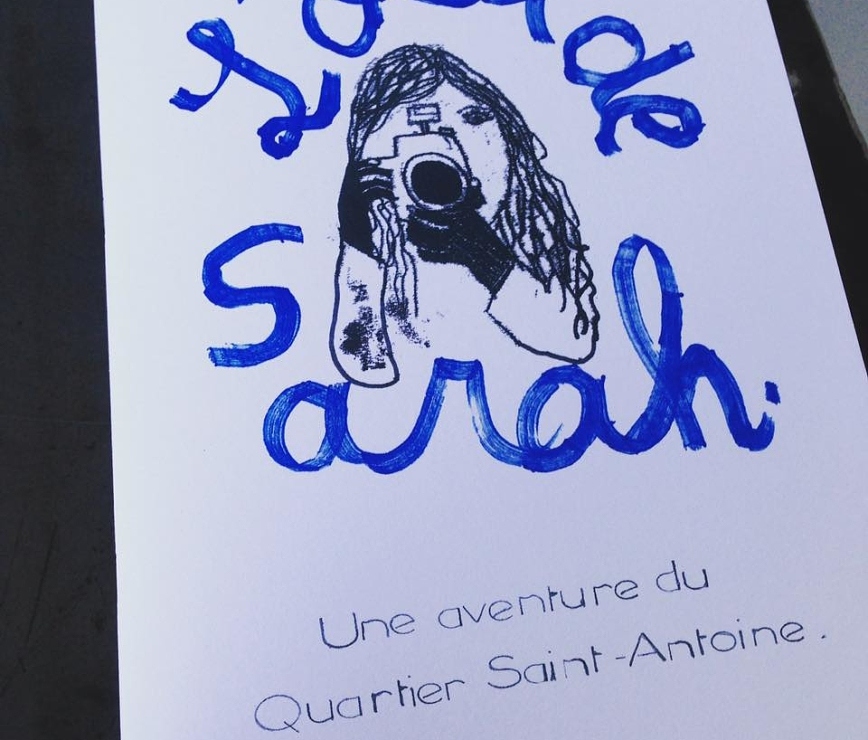 de
Sarah.
Une aventure du
Quartier Saint-Antoine.